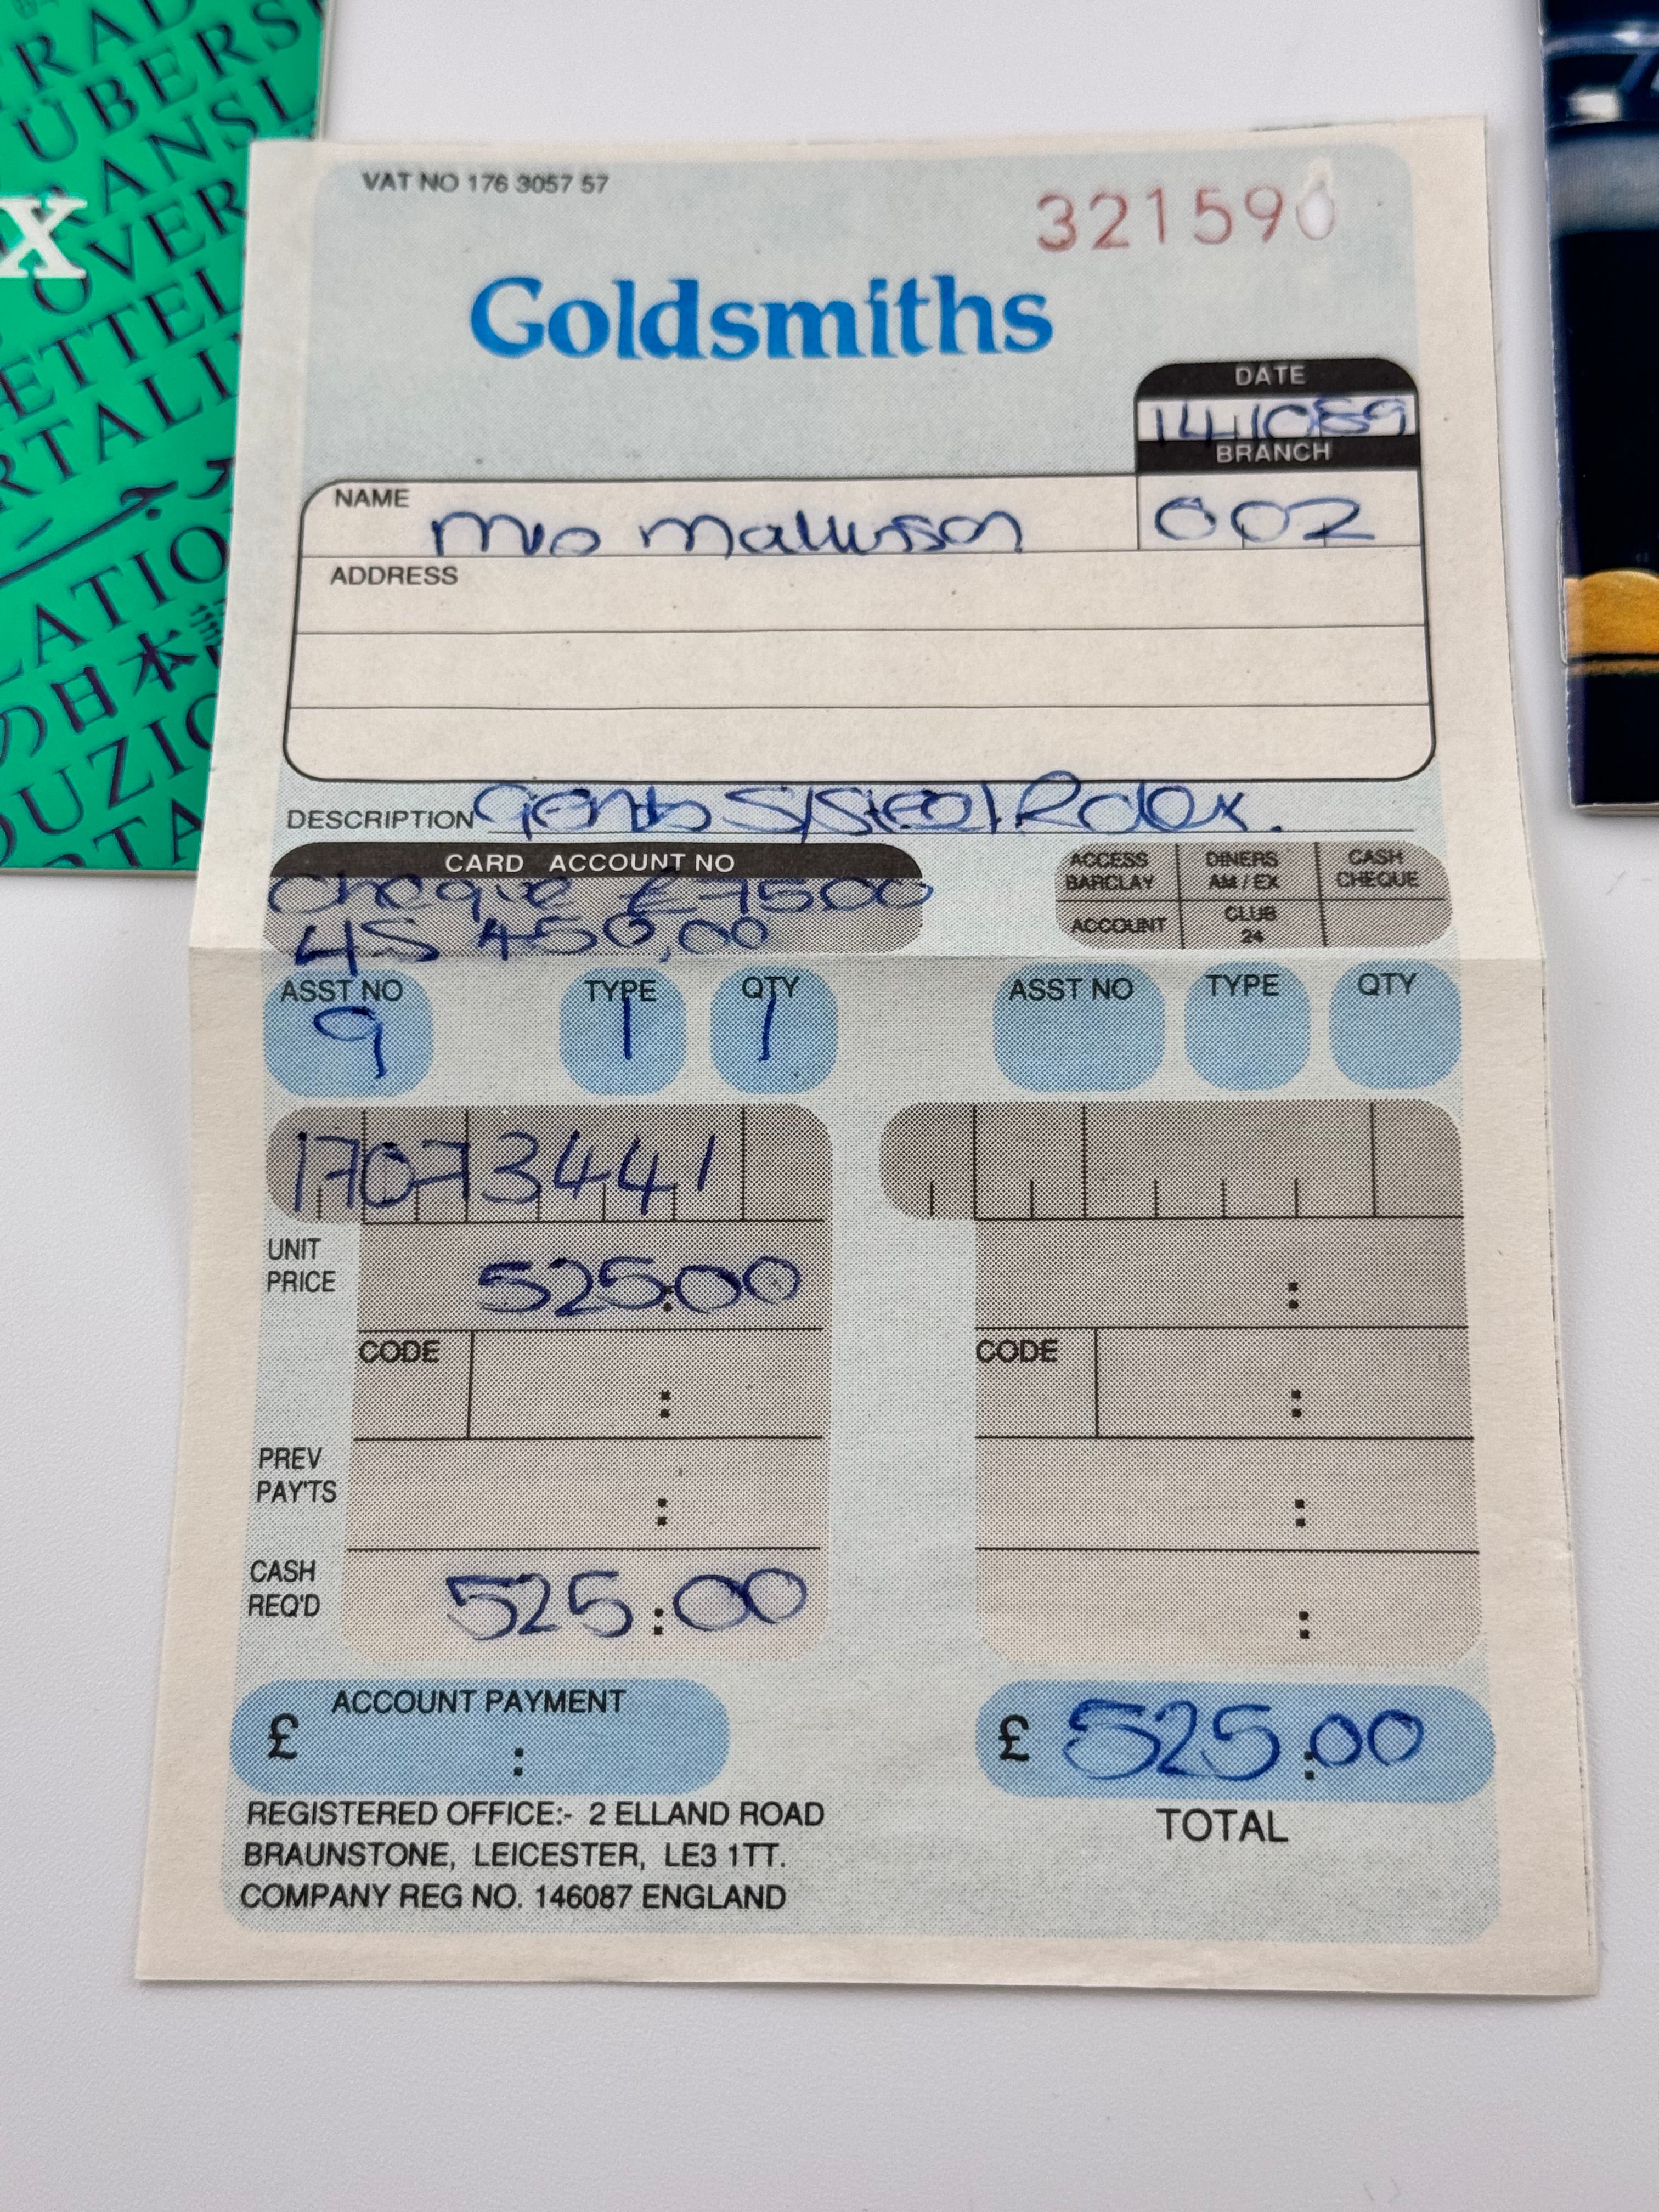 VAT NO 176 3057 57
32159
Goldsmiths
DATE
141089
BRANCH
002
NAME
ADDRESS
DESCRIPTION Gents S/Steel Rolex.
CARD ACCOUNT NO
Cheque £75.00
450.00
ACCESS BARCLAY
DINERS AM/EX
CASH CHEQUE
ACCOUNT
CLUB 24
ASST NO TYPE QTY
9 1 1
ASST NO TYPE QTY
17073441
UNIT PRICE 525.00
CODE :
PREV PAY'TS :
CASH REQ'D 525.00
:
CODE :
:
:
ACCOUNT PAYMENT
£ :
£ 525.00
TOTAL
REGISTERED OFFICE:- 2 ELLAND ROAD
BRAUNSTONE, LEICESTER, LE3 1TT.
COMPANY REG NO. 146087 ENGLAND
x
ÜBERS
TRANSL
OVER
LATIO
の日本語